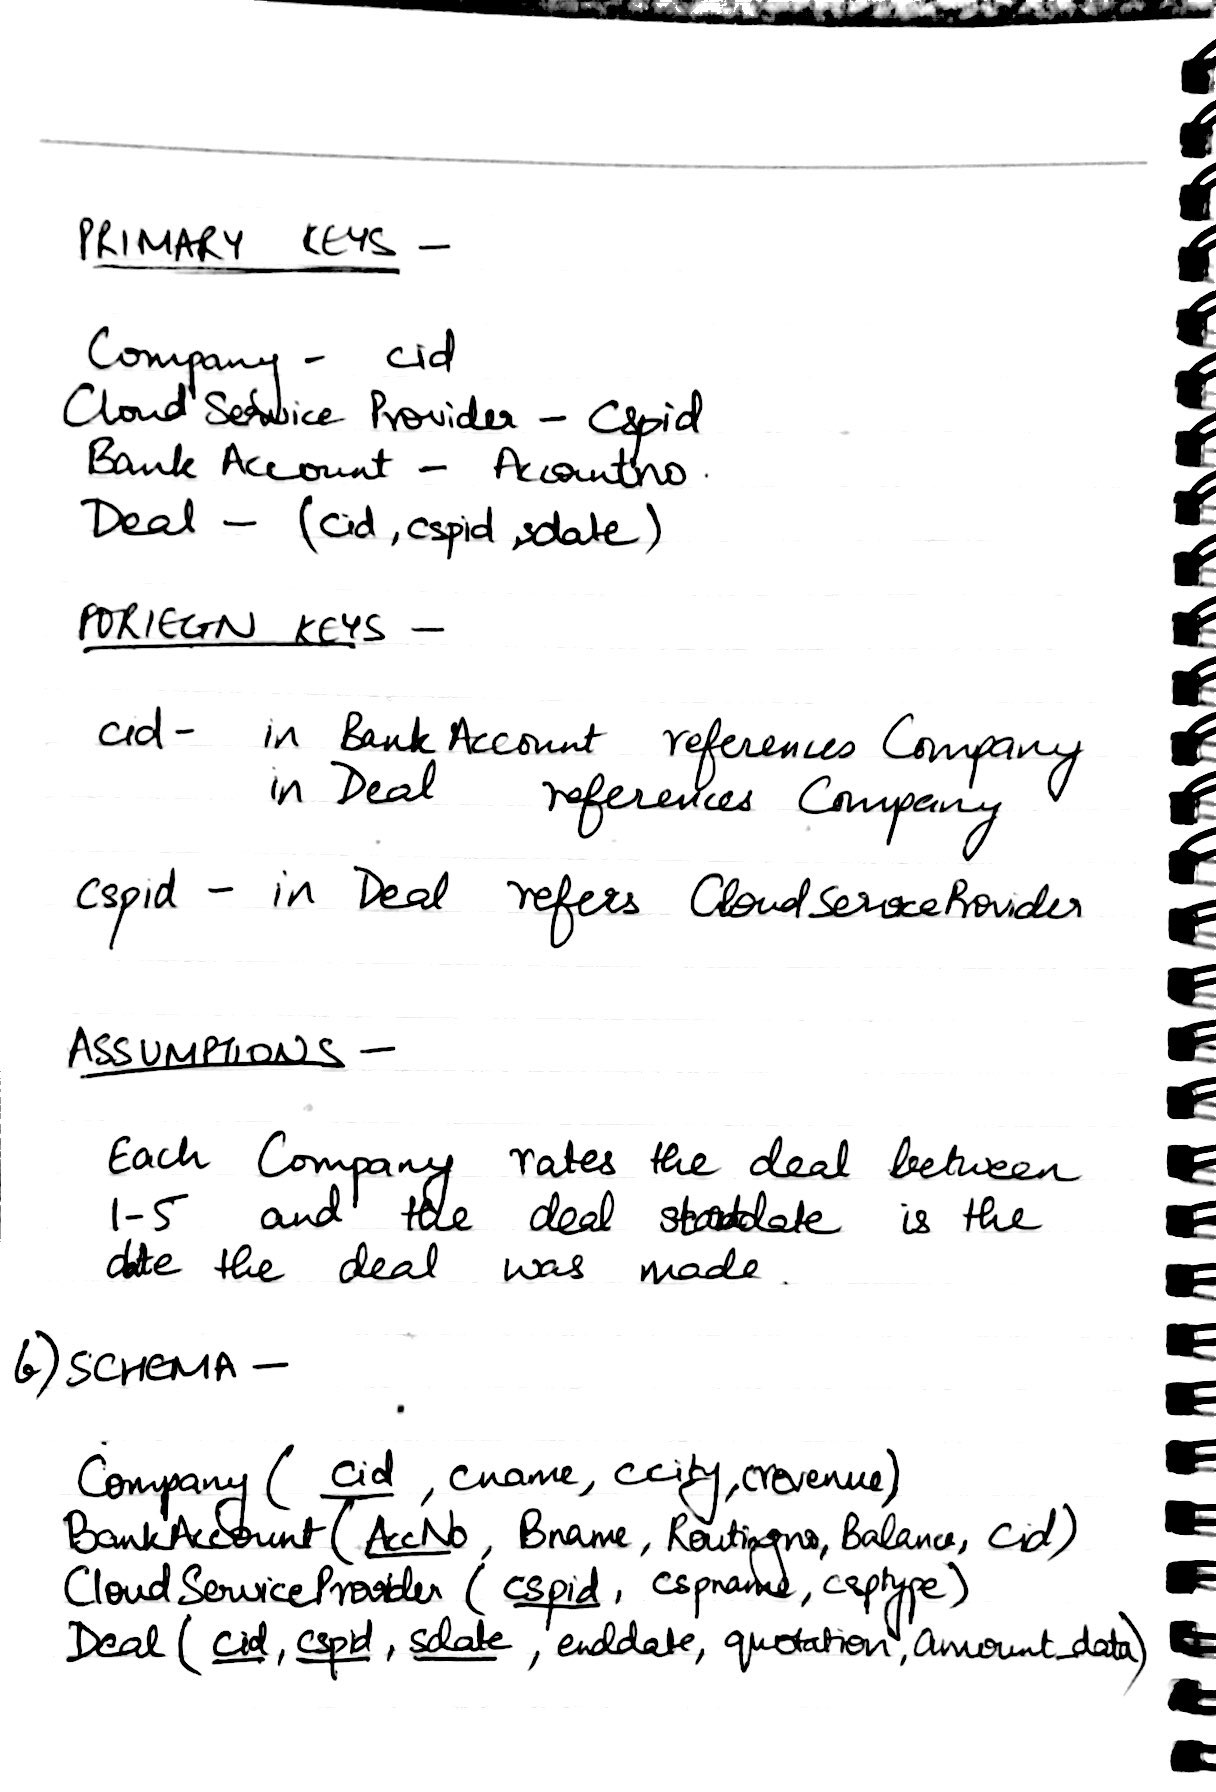 PRIMARY KEYS -
Company - cid
Cloud Service Provider - Cspid
Bank Account - Accountno.
Deal - (cid, cspid, sdate)
FORIEGN KEYS -
cid - in Bank Account references Company
in Deal references Company
cspid - in Deal refers CloudServiceProvider
ASSUMPTIONS -
Each Company rates the deal between
1-5 and the deal startdate is the
date the deal was made.
b) SCHEMA -
Company ( cid, cname, ccity, crevenue)
BankAccount ( AccNo, Bname, Routingno, Balance, cid)
CloudServiceProvider ( cspid, cspname, csptype)
Deal ( cid, cspid, sdate, enddate, quotation, amount_data)